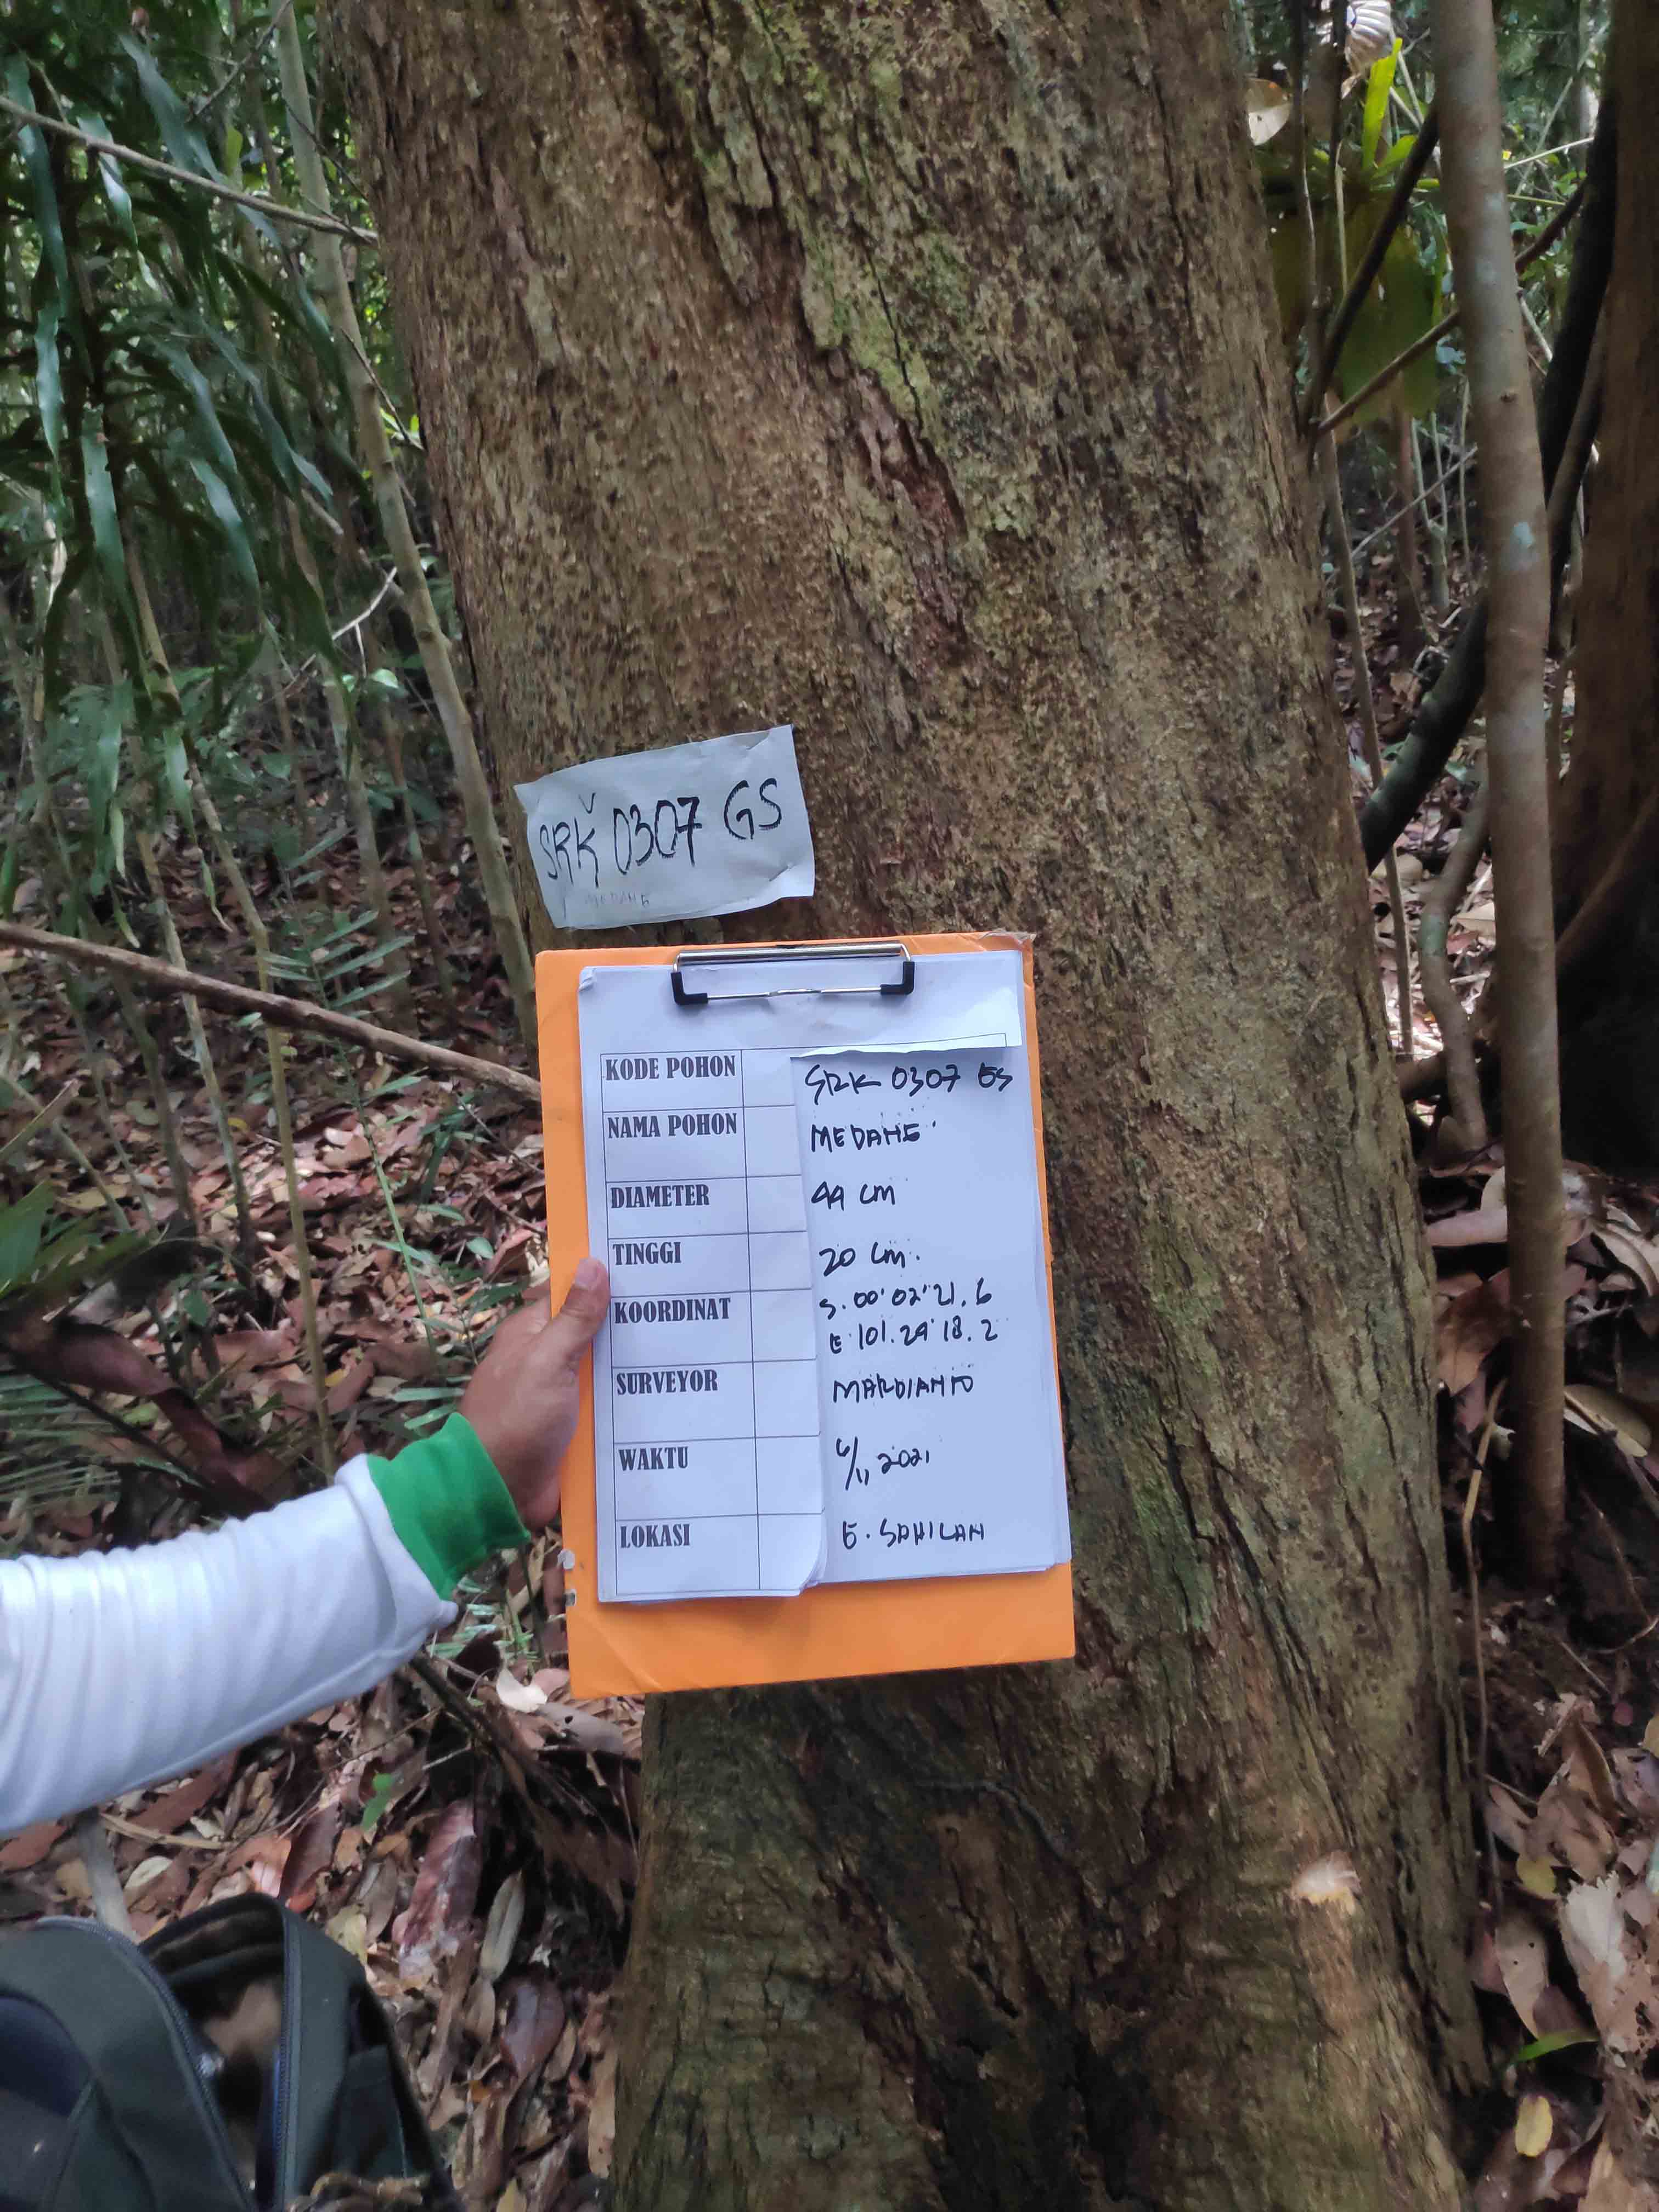 SRK 0307 GS
MEDANG
KODE POHON SRK 0307 GS
NAMA POHON MEDANG
DIAMETER 44 CM
TINGGI 20 CM.
KOORDINAT S. 00° 02' 21.6
E 101. 29' 18. 2
SURVEYOR MARDIANTO
WAKTU 6/11 2021
LOKASI G. SAHILAN